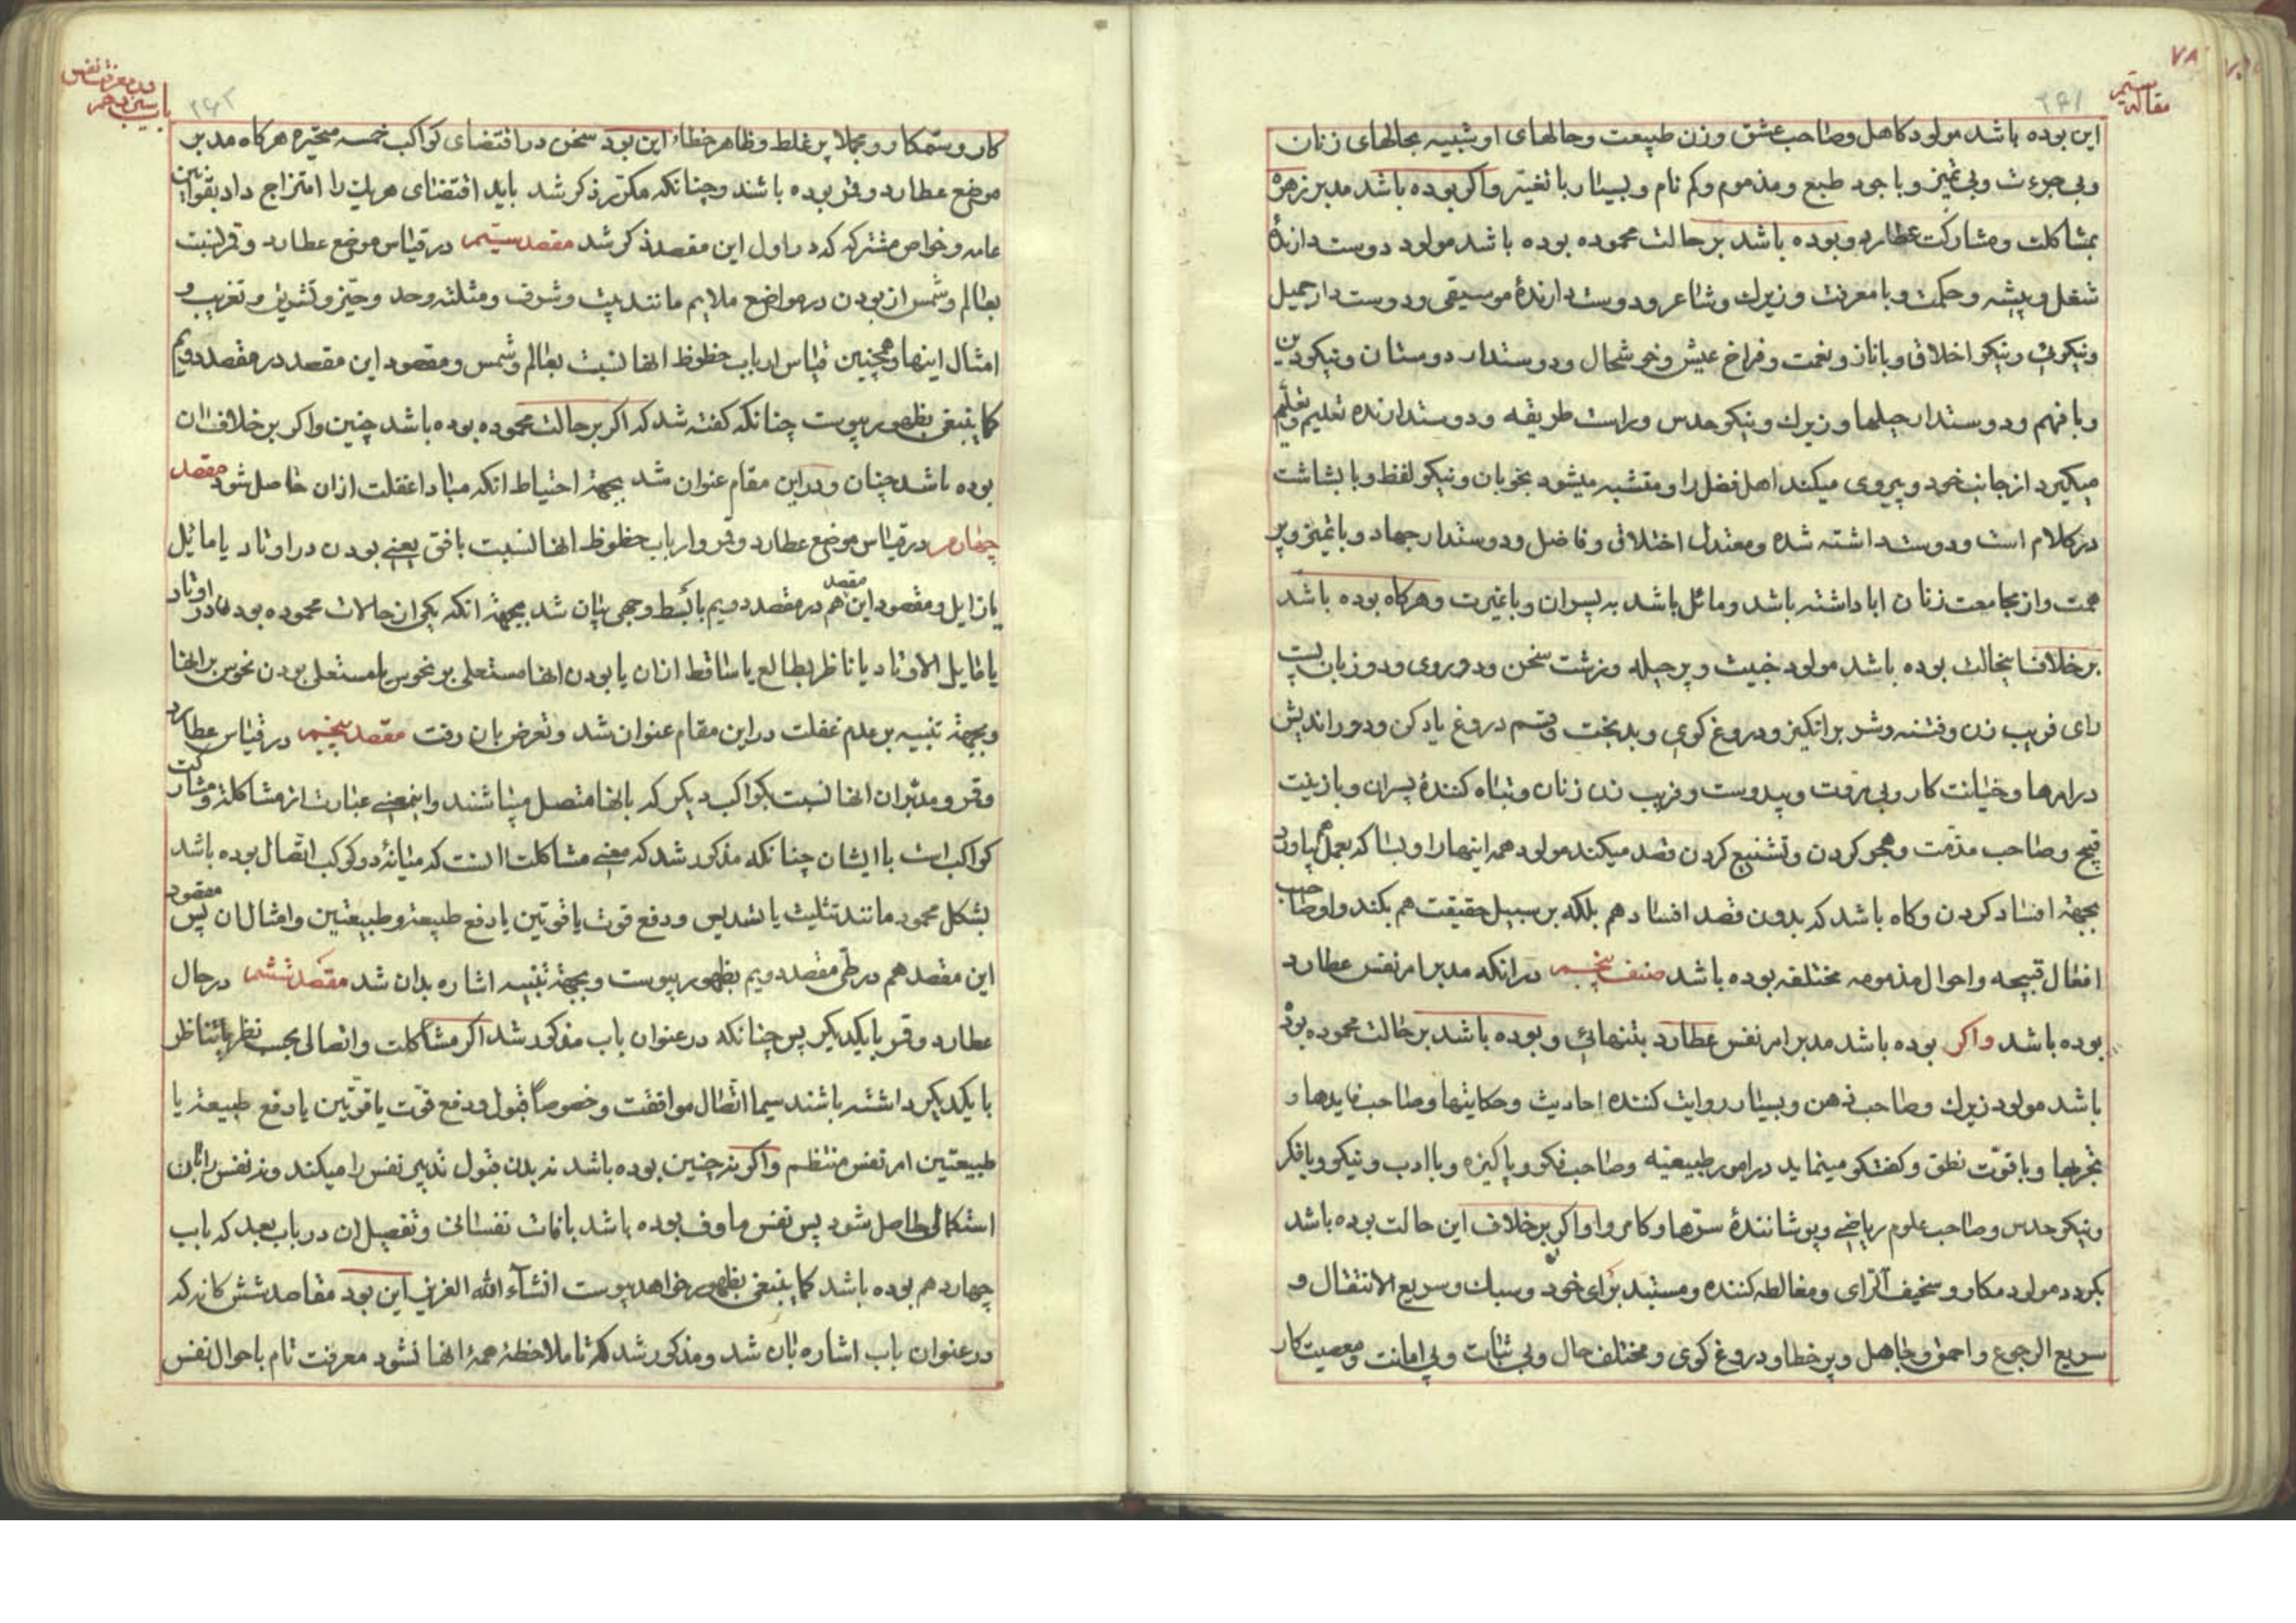 مقاله سیم
۷۸
۲۶۱
این بوده باشد مولود کاهل و صاحب عشق و زن طبیعت و حالهای او شبیه بحالهای زنان
و بی جرءت و بی تمیز و با جود طبع و مذموم و کم نام و بسیار با تغیّر واکر بوده باشد مدبر زهرهٔ
بمشاکلت و مشارکت عطارد و بوده باشد بر حالت محموده بوده باشد مولود دوست دارندهٔ
شغل و پیشه و حکمت و با معرفت و زیرک و شاعر و دوست دارندهٔ موسیقی و دوست دار جمیل
و نیکویی و نیکو اخلاق و با ناز و نعمت و فراخ عیش و خوشحال و دوستدار دوستان و نیکو دین
و با فهم و دوستدار حیلها و زیرک و نیکو حدس و راست طریقه و دوستدارنده تعلیم و تعلّم
میکیرد از جانب خود و پیروی میکند اهل فضل را و متشبه میشود بخوبان و نیکو لفظ و با بشاشت
در کلام است و دوست داشته شده و معتدل اخلاق و فاضل و دوستدار جهاد و با تمیز و پر
همت و از مجامعت زنان ابا داشته باشد و مائل باشد به پسران و با غیرت و هرکاه بوده باشد
بر خلاف اینحالت بوده باشد مولود خبیث و پر حیله و زشت سخن و دو روی و دو زبان پست
رای فریب زن و فتنه و شر برانکیز و دروغ کوی و بدبخت و قسم دروغ یاد کن و دور اندیش
در امرها و خیانت کار و بی مروّت و پیدوست و فریب زن زنان و تباه کنندهٔ پسران و با زینت
قبیح و صاحب مذمّت و هجو کردن و تشنیع کردن قصد میکند مولود همه اینها را و بسا که بعمل هم بیاورد
بجهة افساد کردن و کاه باشد که بدون قصد افساد هم بلکه بر سبیل حقیقت هم بکند و او صاحب
افعال قبیحه و احوال مذمومه مختلفه بوده باشد صنف پنجم در انکه مدبر امر نفس عطارد
بوده باشد واکر بوده باشد مدبر امر نفس عطارد بتنهائی و بوده باشد بر حالت محموده بوده
باشد مولود زیرک و صاحب ذهن و بسیار روایت کننده احادیث و حکایتها و صاحب فایدها و
تجربها و با قوّت نطق و کفتکو مینماید در امور طبیعیه و صاحب فکر و پاکیزه و با ادب و نیکو و با فکر
و نیکو حدس و صاحب علوم ریاضی و پوشانندهٔ سرّها و کامروا واکر بر خلاف این حالت بوده باشد
بکردد مولود مکار و سخیف الرای و مغالطه کننده و مستبد برای خود و سبک و سریع الانتقال و
سریع الرجوع و احمق و جاهل و پر خطا و دروغ کوی و مختلف حال و بی ثبات و بی امانت و معصیت کار
در معرفت نفس
باب سیزدهم
۲۶۲
کار و ستمکار و مجملا پر غلط و ظاهر خطاء این بود سخن در اقتضای کواکب خمسه متحیره هرکاه مدبر
موضع عطارد و قمر بوده باشند و چنانکه مکرّر ذکر شد باید اقتضای هریک را امتزاج داد بقوانین
عامه و خواص مشترکه که در اول این مقصد ذکر شد مقصد سیّم در قیاس موضع عطارد و قمر نسبت
بعالم و شمس از بودن در مواضع ملایم مانند بیت و شرف و مثلثه و حد و حیّز و تشریق و تغریب و
امثال اینها و همچنین قیاس ارباب حظوظ انها نسبت بعالم و شمس و مقصود این مقصد در مقصد دویم
کما ینبغی بظهور پیوست چنانکه کفته شد که اکر بر حالت محموده بوده باشد چنین واکر بر خلاف ان
بوده باشد چنان و در این مقام عنوان شد بجهة احتیاط انکه مبادا غفلت ازان حاصل شود مقصد
چهارم در قیاس موضع عطارد و قمر و ارباب حظوظ انها نسبت بافق یعنی بودن در اوتاد یا مائیل
یا زایل و مقصود این مقصد هم در مقصد دویم بابسط وجهی بیان شد بجهة انکه یکی از حالات محموده بودن در اوتاد
یا مایل الاوتاد یا ناظر بطالع یا ساقط ازان یا بودن انها مستعلی بر نحوس یا مستعلی بودن نحوس بر انها
و بجهة تنبیه بر عدم غفلت در این مقام عنوان شد و تعرض بان رفت مقصد پنجم در قیاس عطارد
و قمر و مدبّران انها نسبت بکواکب دیکر که بانها متصل میباشند و اینمعنی عبارت از مشاکلة و مشارکت
کواکب است با ایشان چنانکه مذکور شد که معنی مشاکلت انست که میانهٔ دو کوکب اتّصال بوده باشد
بشکل محمود مانند تثلیث یا تسدیس و دفع قوت یا قوتین یا دفع طبیعة و طبیعتین و امثال ان پس مقصود
این مقصد هم در طی مقصد دویم بظهور پیوست و بجهة تنبیه اشاره بدان شد مقصد ششم در حال
عطارد و قمر با یکدیکر پس چنانکه در عنوان باب مذکور شد اکر مشاکلت و اتصالی بحسب نظر یا تناظر
با یکدیکر داشته باشند سیما اتّصال موافقت و خصوصاً قبول و دفع قوّت یا قوّتین یا دفع طبیعة یا
طبیعتین امر نفس منتظم واکر نه چنین بوده باشد نه بدن قبول تدبیر نفس را میکند و نه نفس را بان
استکمالی حاصل شود پس نفس ماوف بوده باشد بافات نفسانی و تفصیل ان در باب بعد که باب
چهاردهم بوده باشد کما ینبغی بظهور خواهد پیوست انشآء الله العزیز این بود مقاصد ششکانه که
در عنوان باب اشاره بان شد و مذکور شد که تا ملاحظهٔ همهٔ انها نشود معرفت تام باحوال نفس